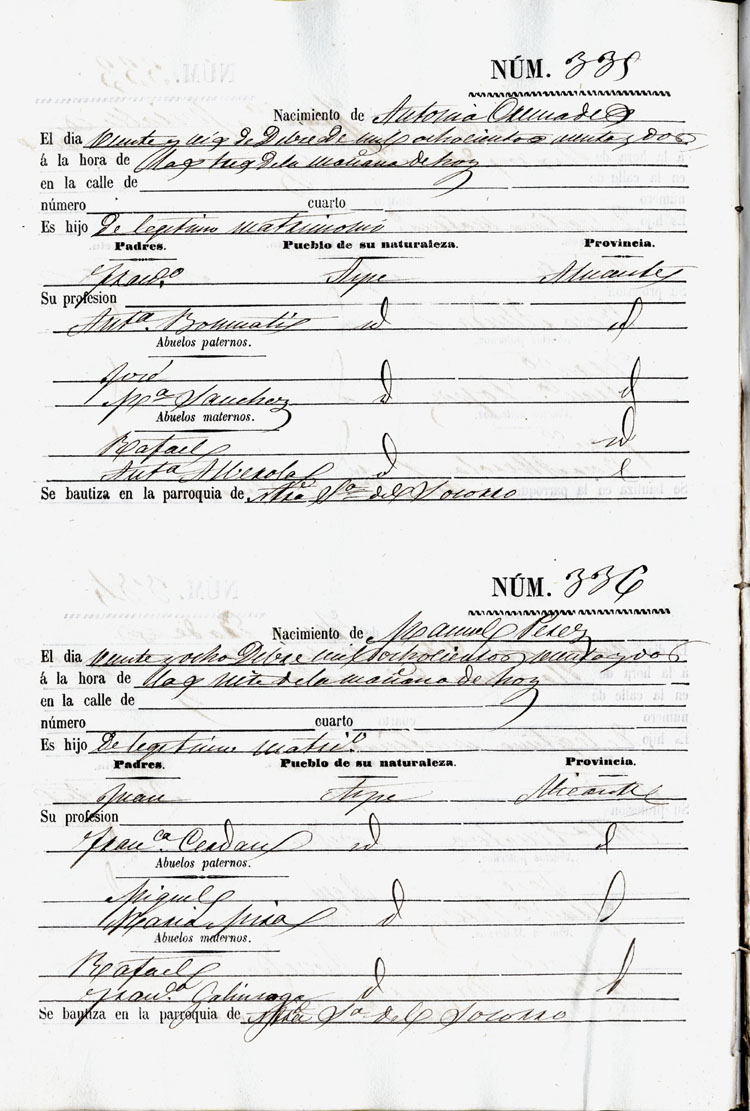 NÚM. 335
Nacimiento de Antonia Cremades
El dia veinte y seis de Dbre de mil ochocientos sesenta y dos
á la hora de las tres de la mañana de hoy
en la calle de
número cuarto
Es hijo de legitimo matrimonio
Padres. Pueblo de su naturaleza. Provincia.
Franco. Aspe Alicante
Su profesion
Anta. id id
Abuelos paternos.
José
Ma Sanchez id id
Abuelos maternos.
Rafael id
Anta Alberola id id
Se bautiza en la parroquia de Ntra Sa del Socorro
NÚM. 336
Nacimiento de Manuel Perez
El dia veinte y ocho Dbre mil ochocientos sesenta y dos
á la hora de las siete de la mañana de hoy
en la calle de
número cuarto
Es hijo de legitimo matrio.
Padres. Pueblo de su naturaleza. Provincia.
Juan Aspe Alicante
Su profesion
Franca. Cerdan id id
Abuelos paternos.
Miguel
Maria Mira id id
Abuelos maternos.
Rafael
Franca. Galinsoga id id
Se bautiza en la parroquia de Ntra Sa del Socorro